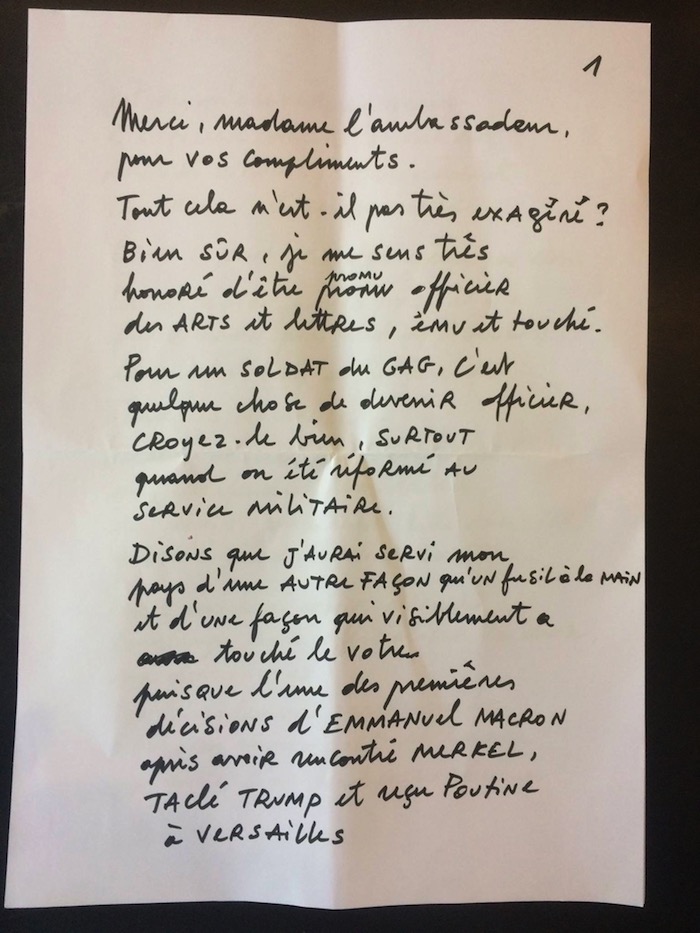 1
Merci, madame l'ambassadeur,
pour vos compliments.
Tout cela n'est-il pas très exagéré?
Bien sûr, je me sens très
promu
honoré d'être promu officier
des ARTS et lettres, ému et touché.
Pour un SOLDAT du GAG, c'est
quelque chose de devenir officier,
CROYEZ-le bien, SURTOUT
quand on été réformé AU
service MILITAIRE.
DISONS que J'AURAI SERVI mon
pays d'une AUTRE FAÇON qu'un fusil à la MAIN
et d'une façon qui visiblement a
touché le votre
puisque l'une des premières
décisions d'EMMANUEL MACRON
après avoir rencontré MERKEL,
TACLÉ TRUMP et reçu Poutine
à VERSAILLES